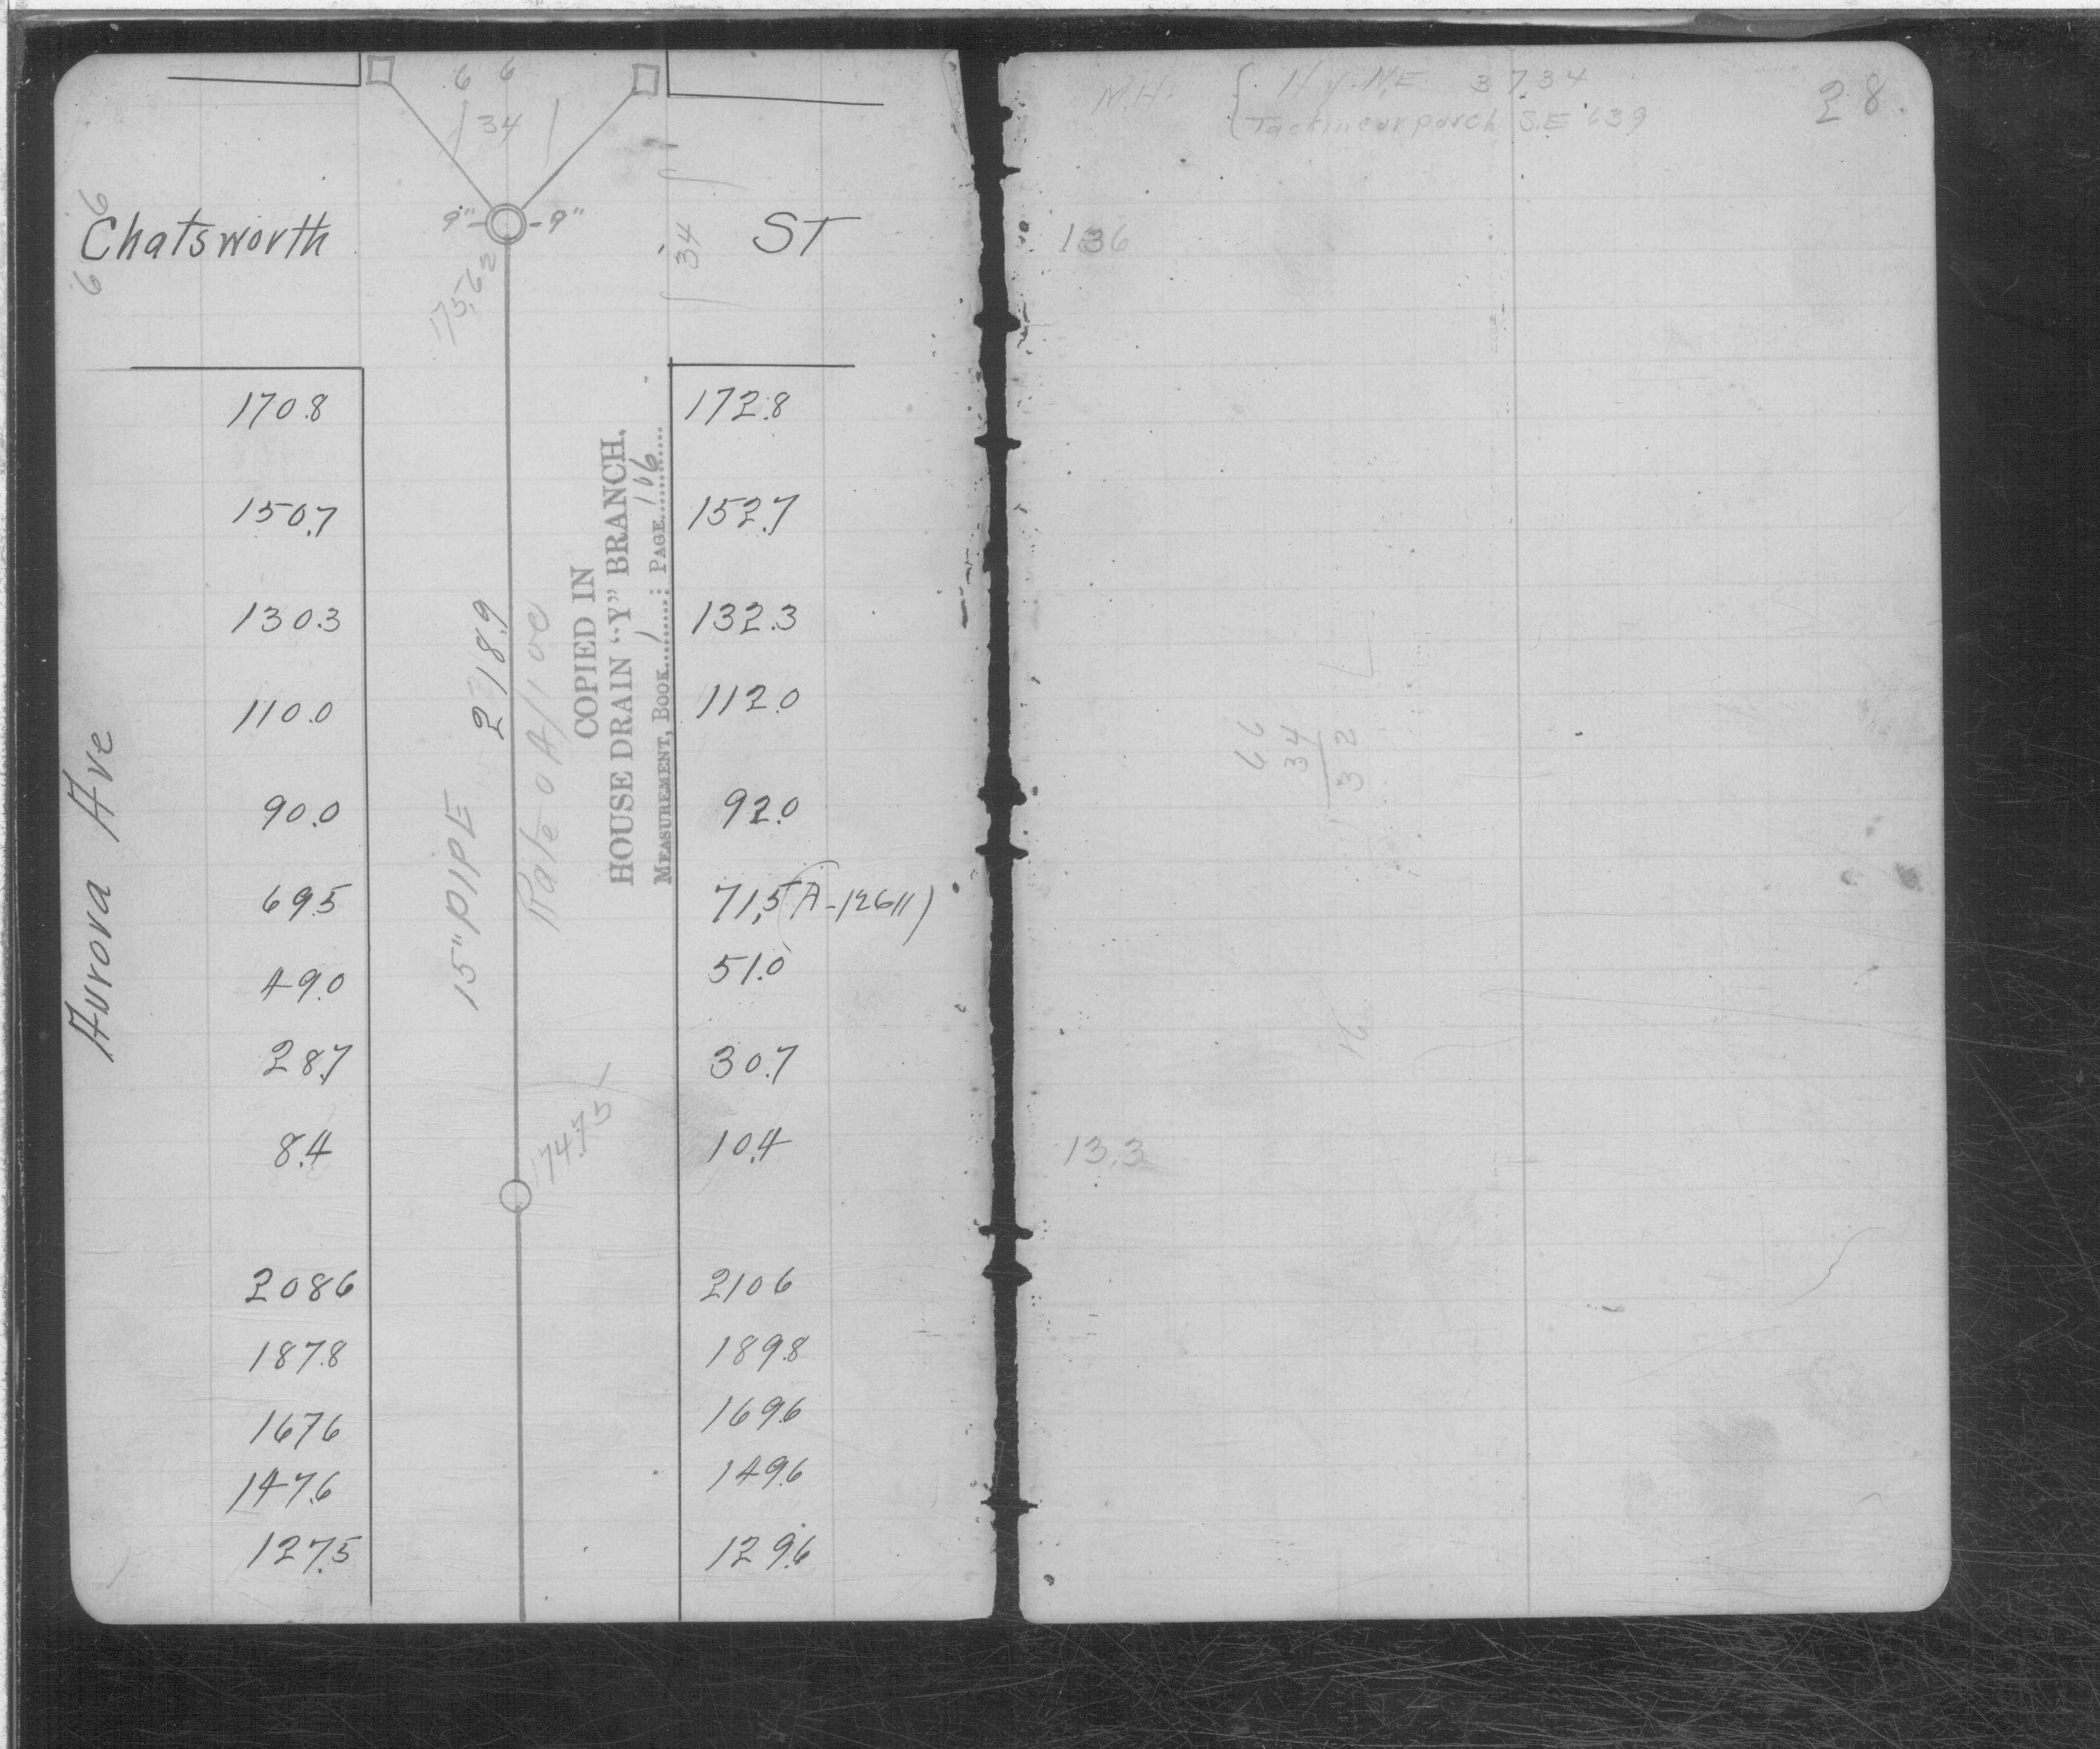 6 6
34
Chatsworth 9" 9" 34 ST
66
175.62
170.8 172.8
150.7 152.7
130.3 132.3
110.0 112.0
90.0 92.0
69.5 71.5 (A-12611)
49.0 51.0
28.7 30.7
8.4 10.4
208.6 210.6
187.8 189.8
167.6 169.6
147.6 149.6
127.5 129.6
Aurora Ave
15" PIPE
218.9
COPIED IN
HOUSE DRAIN "Y" BRANCH.
MEASUREMENT, BOOK 1 : PAGE 106
174.75
M.H. Hy. N.E 37.34 28
S.E 639
136
66
34
32
16
13.3